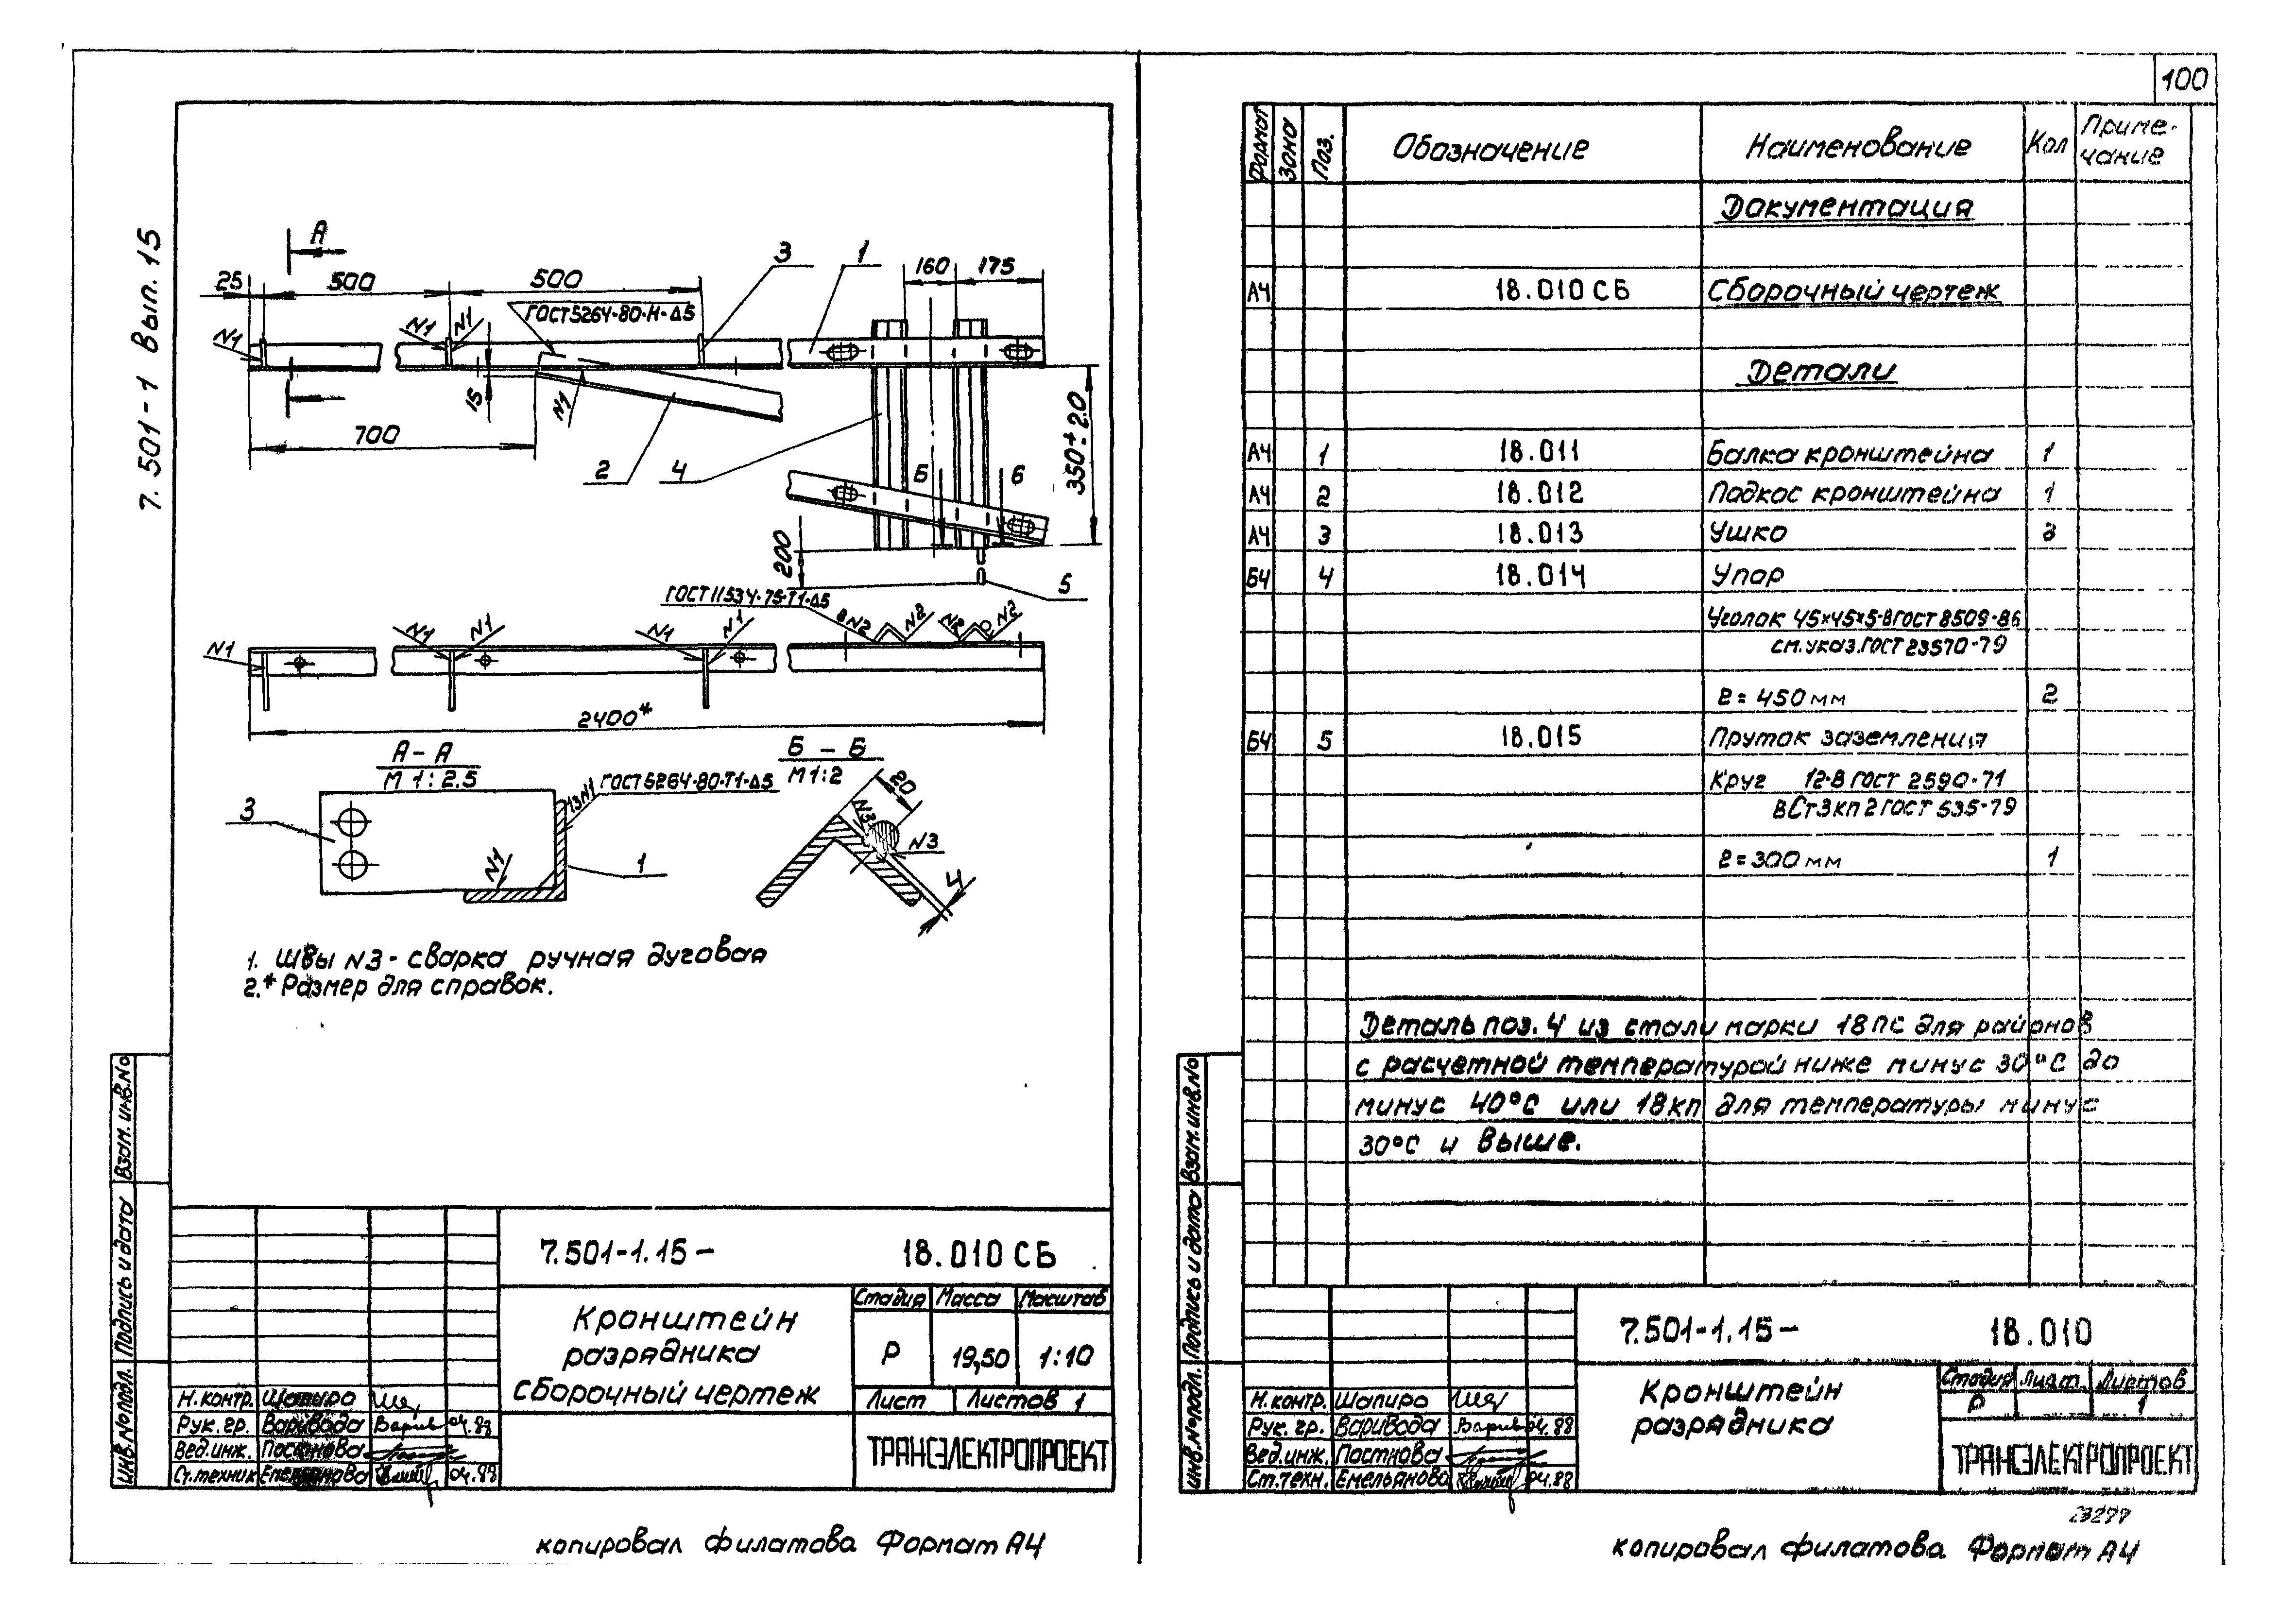 7.501-1 Вып. 15
А
25
500
500
3
1
160
175
ГОСТ 5264-80-Н-Δ5
N1
N1
N1
15
N1
700
2
4
Б
Б
350±20
200
5
ГОСТ 11534-75-Т1-Δ5
N1
N1
N1
N1
N1
8N2
N2
N2
N2
2400*
А-А
М 1:2.5
3
N1
ГОСТ 5264-80-Т1-Δ5
1
Б-Б
М 1:2
20
N3
N3
4
1. Швы N3 - сварка ручная дуговая
2.* Размер для справок.
Взам. инв. No
Подпись и дата
Инв. No подл.
7.501-1.15- 18.010 СБ
Кронштейн
разрядника
сборочный чертеж
Стадия Масса Масштаб
Р 19,50 1:10
Лист Листов 1
ТРАНСЭЛЕКТРОПРОЕКТ
Н.контр. Шапиро
Рук. гр. Варивода 04.88
Вед.инж. Постнова
Ст.техник Емельянова 04.88
копировал филатова Формат А4
100
Формат Зона Поз. Обозначение Наименование Кол Приме-
чание
Документация
А4 18.010 СБ Сборочный чертеж
Детали
А4 1 18.011 Балка кронштейна 1
А4 2 18.012 Подкос кронштейна 1
А4 3 18.013 Ушко 3
БЧ 4 18.014 Упор
Уголок 45×45×5-В ГОСТ 8509-86
см.указ.ГОСТ 23570-79
ℓ= 450 мм 2
БЧ 5 18.015 Пруток заземления
Круг 12-В ГОСТ 2590-71
ВСт3кп2 ГОСТ 535-79
ℓ=300 мм 1
Деталь поз. 4 из стали марки 18пс для районов
с расчетной температурой ниже минус 30°С до
минус 40°С или 18кп для температуры минус
30°С и выше.
Взам. инв. No
Подпись и дата
Инв. No подл.
7.501-1.15- 18.010
Кронштейн
разрядника
Стадия Лист Листов
Р 1
ТРАНСЭЛЕКТРОПРОЕКТ
Н.контр. Шапиро
Рук. гр. Варивода 04.88
Вед.инж. Постнова
Ст.техн. Емельянова 04.88
копировал филатова Формат А4